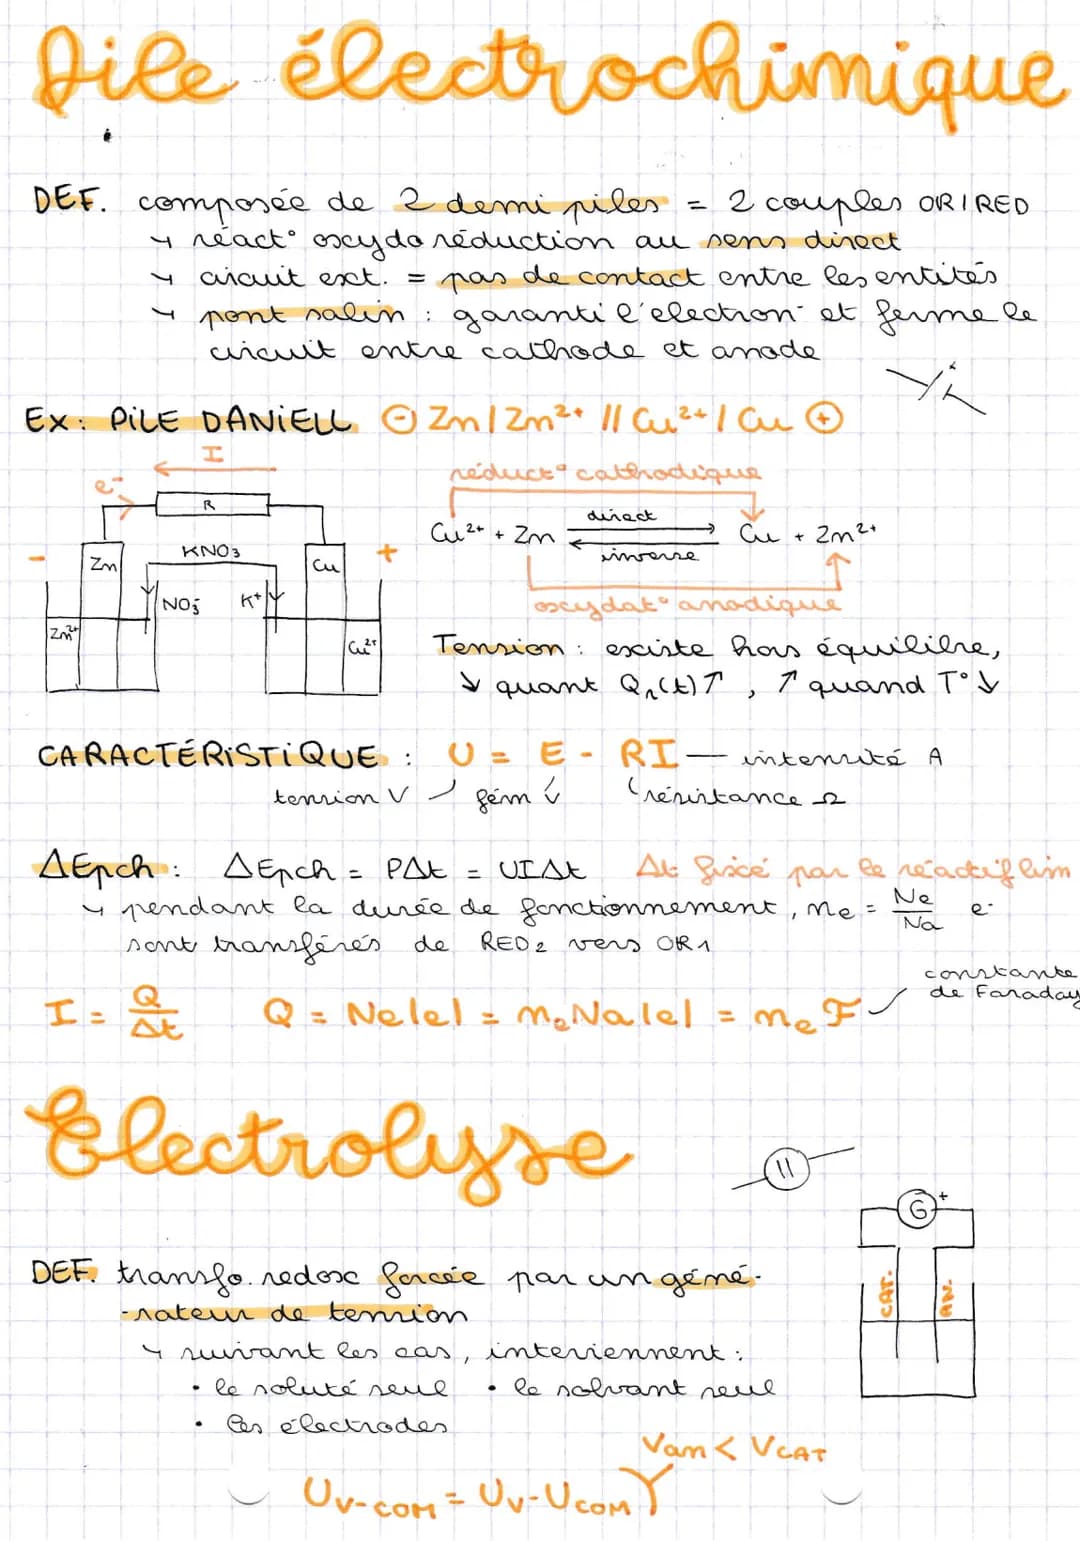 Pile électrochimique
DEF. composée de 2 demi piles = 2 couples OX/RED
↳ réact° oxydoréduction au sens direct
↳ circuit ext. = pas de contact entre les entités
↳ pont salin : garanti l'électron- et ferme le
circuit entre cathode et anode
EX: PILE DANIELL ⊖ Zn / Zn²⁺ // Cu²⁺ / Cu ⊕
I
e-
R
KNO3
- Zn Cu +
NO3- K+
Zn²⁺ Cu²⁺
réduct° cathodique
Cu²⁺ + Zn direct Cu + Zn²⁺
inverse
oxydat° anodique
Tension : existe hors équilibre,
↓ quant Qr(t) ↑, ↑ quand T° ↓
CARACTÉRISTIQUE : U = E - RI — intensité A
tension V fém V résistance Ω
ΔEpch : ΔEpch = PΔt = UIΔt Δt fixé par le réactif lim
↳ pendant la durée de fonctionnement, ne = Ne/Na e-
sont transférés de RED2 vers OX1
constante
de Faraday
I = Q/Δt Q = Ne|e| = neNa|e| = neF
Electrolyse
G +
CAT. AN.
DEF. transfo. redox forcée par un géné-
-rateur de tension
↳ suivant les cas, interviennent :
• le soluté seul • le solvant seul
• les électrodes
Van < VCAT
UV-COM = UV-UCOM